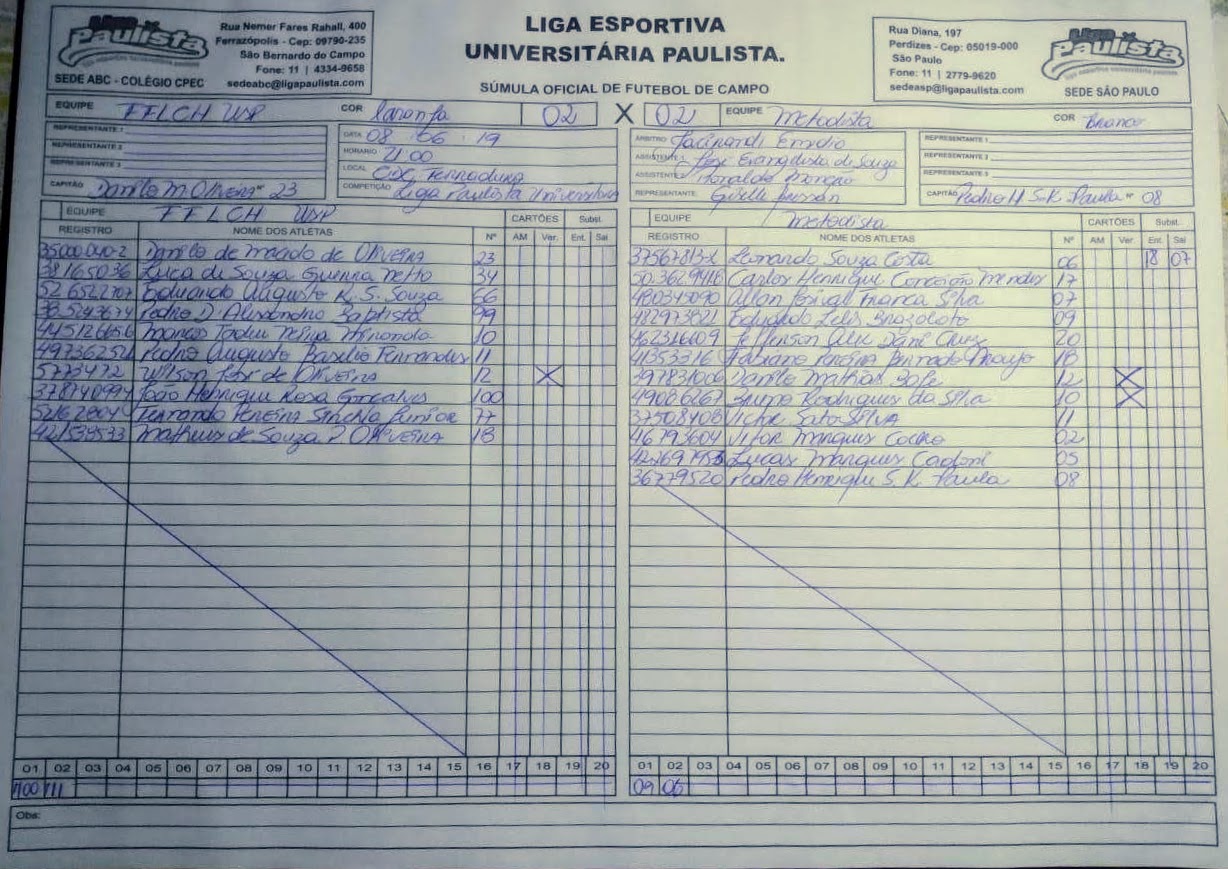 Liga Paulista
liga esportiva universitária paulista
SEDE ABC - COLÉGIO CPEC
Rua Nemer Fares Rahall, 400
Ferrazópolis - Cep: 09790-235
São Bernardo do Campo
Fone: 11 | 4334-9658
sedeabc@ligapaulista.com
LIGA ESPORTIVA
UNIVERSITÁRIA PAULISTA.
SÚMULA OFICIAL DE FUTEBOL DE CAMPO
Rua Diana, 197
Perdizes - Cep: 05019-000
São Paulo
Fone: 11 | 2779-9620
sedeasp@ligapaulista.com
Liga Paulista
liga esportiva universitária paulista
SEDE SÃO PAULO
EQUIPE FFLCH USP COR laranja 02 X 02 EQUIPE Metodista COR Branco
REPRESENTANTE 1
REPRESENTANTE 2
REPRESENTANTE 3
CAPITÃO Danilo M. Oliveira nº 23
DATA 08 06 19
HORARIO 21 00
LOCAL CDC
COMPETIÇÃO Liga Paulista Universitária
ARBITRO
ASSISTENTE 1 Jose Evangelista de Souza
ASSISTENTE 2 Ronaldo
REPRESENTANTE
REPRESENTANTE 1
REPRESENTANTE 2
REPRESENTANTE 3
CAPITÃO Pedro H S.K. Paula nº 08
EQUIPE FFLCH USP CARTÕES Subst.
REGISTRO NOME DOS ATLETAS Nº AM Ver. Ent. Sai
35000040-2 Danilo de macedo de Oliveira 23
38165036 Luca de Souza Guerra Netto 34
526522707 Eduardo Augusto K. S. Souza 66
Pedro D. Alexandro Baptista 99
445126656 Marcos Tadeu Miranda 10
497362521 Pedro Augusto Basilio Fernandes 11
5773472 Wilson Jose de Oliveira 12 X
378740994 João Henrique Rosa Goncalves 100
Fernando Pereira Junior 77
421539533 Matheus de Souza P. Oliveira 18
EQUIPE Metodista CARTÕES Subst.
REGISTRO NOME DOS ATLETAS Nº AM Ver. Ent. Sai
37567813-2 Leonardo Souza Costa 06 18 07
503629418 Carlos Henrique Conceição Mendes 17
480345090 Allan Franca Silva 07
482973821 Eduardo Lelis 09
462316609 Jefferson 20
41353316 Fabiano Pereira Araujo 18
397831006 Danilo Mathias 12 X
49086267 Bruno Rodrigues da Silva 10 X
37508408 Victor Sato Silva 11
46793604 Vitor Marques Coelho 02
Lucas Marques Cadoni 05
36779520 Pedro Henrique S. K. Paula 08
01 02 03 04 05 06 07 08 09 10 11 12 13 14 15 16 17 18 19 20
100 11
01 02 03 04 05 06 07 08 09 10 11 12 13 14 15 16 17 18 19 20
09 06
Obs: